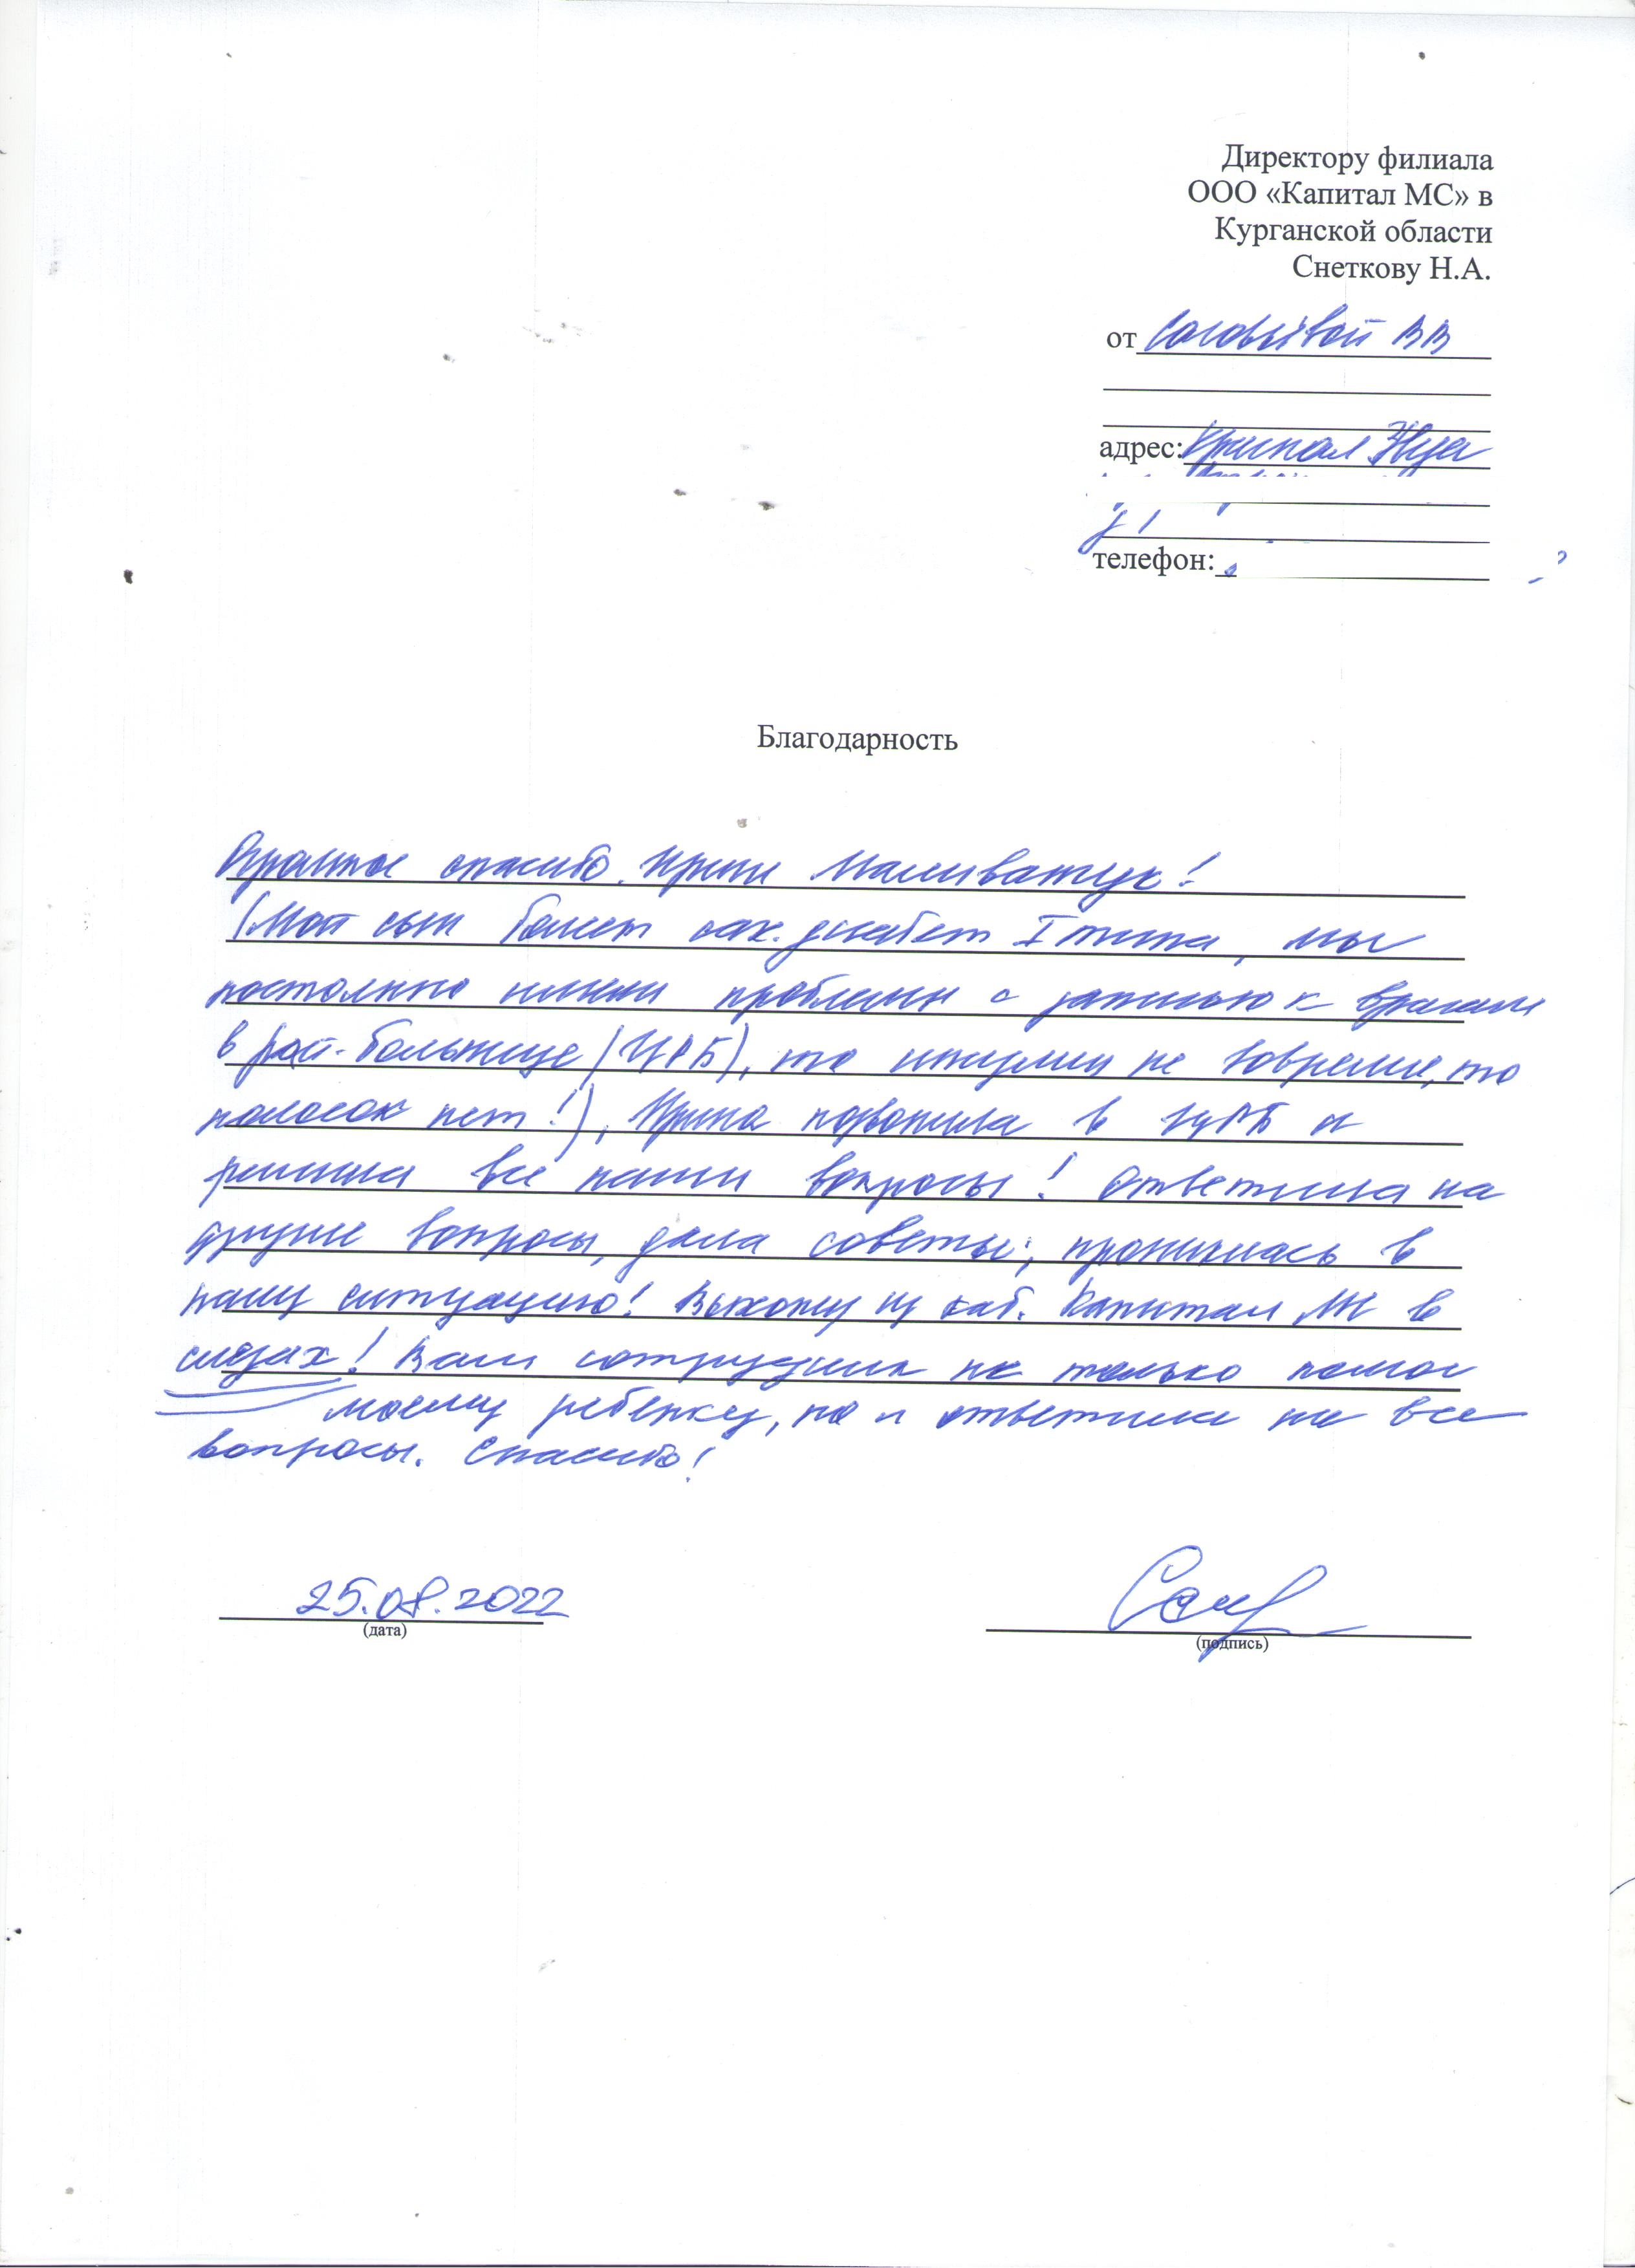 Директору филиала
ООО «Капитал МС» в
Курганской области
Снеткову Н.А.
от Соловьёвой ВВ
адрес:
телефон:
Благодарность
спасибо Ирине !
(Мой сын болеет сах. диабет I типа, мы
постоянно имеем проблемы с записью к врачам
в рай-больнице (ЦРБ), то инсулин не вовремя, то
полосок нет!), Ирина позвонила в ЦРБ и
решила все наши вопросы! Ответила на
другие вопросы, дала советы, прониклась в
нашу ситуацию! Выхожу из каб. Капитал МС в
слезах! Ваш сотрудник не только помог
моему ребенку, но и ответила на все
вопросы. Спасибо!
25.08.2022
(дата)
(подпись)